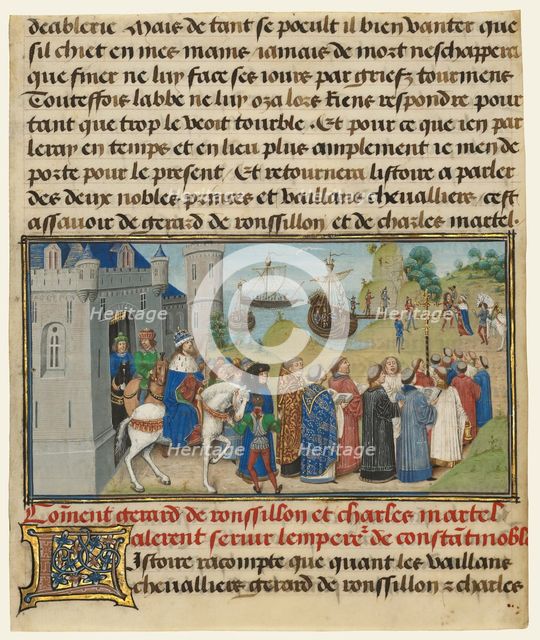 deablerie Mais de tant se poeult il bien vanter que
sil chiet en mes mains iamais de mort neschappera
que finer ne luy face ses iours par griefz tourmens
Touteffois labbe ne luy oza lors Riens respondre pour
tant que trop le veoit tourble . Et pour ce que ien par
leray en temps et en lieu plus amplement ie men de
porte pour le present . Et retournera listoire a parler
des deux nobles princes et vaillans chevalliers cest
assauoir de gerard de roussillon et de charles martel .
Heritage
Heritage
Heritage
Heritage
Heritage
Heritage
Heritage
Heritage
Coment gerard de roussillon et charles martel
alerent seruir lempere de constantinoble
Listoire racompte que quant les vaillans
chevalliers gerard de roussillon z charles